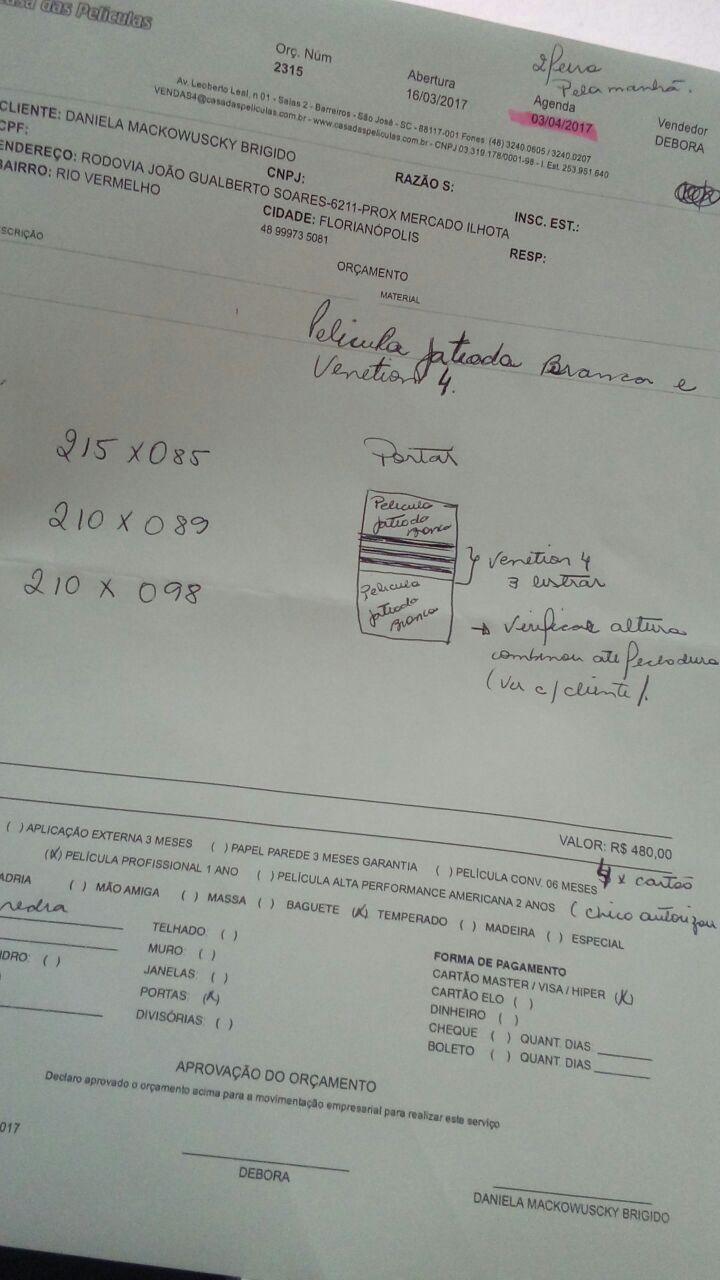 das Películas
Orç. Núm
2315
Abertura
16/03/2017
2ª feira
Pela manhã.
Agenda
03/04/2017
Vendedor
DEBORA
Av. Leoberto Leal, n 01 - Salas 2 - Barreiros - São José - SC - 88117-001 Fones: (48) 3240.0605 / 3240.0207
VENDAS4@casadaspeliculas.com.br - www.casadaspeliculas.com.br - CNPJ 03.319.178/0001-98 - I. Est. 253.951.640
CLIENTE: DANIELA MACKOWUSCKY BRIGIDO
CPF:
CNPJ:
RAZÃO S:
INSC. EST.:
ENDEREÇO: RODOVIA JOÃO GUALBERTO SOARES-6211-PROX MERCADO ILHOTA
BAIRRO: RIO VERMELHO
CIDADE: FLORIANÓPOLIS
RESP:
48 99973 5081
SCRIÇÃO
ORÇAMENTO
MATERIAL
Pelicula Jateada Branca e
Venetion 4.
215 x 085
210 x 089
210 x 098
Portas
Pelicula
Jateada
Branca
Venetion 4
3 listras
Pelicula
Jateada
Branca
→ Verificar altura
combinou até fechadura
(ver c/ cliente).
VALOR: R$ 480,00
4 x cartão
( ) APLICAÇÃO EXTERNA 3 MESES ( ) PAPEL PAREDE 3 MESES GARANTIA ( ) PELÍCULA CONV. 06 MESES
(X) PELÍCULA PROFISSIONAL 1 ANO ( ) PELÍCULA ALTA PERFORMANCE AMERICANA 2 ANOS
(chico autorizou
ADRIA ( ) MÃO AMIGA ( ) MASSA ( ) BAGUETE (X) TEMPERADO ( ) MADEIRA ( ) ESPECIAL
TELHADO: ( )
MURO: ( )
DRO: ( )
JANELAS: ( )
PORTAS: (X)
DIVISÓRIAS: ( )
FORMA DE PAGAMENTO
CARTÃO MASTER / VISA / HIPER (X)
CARTÃO ELO ( )
DINHEIRO ( )
CHEQUE ( ) QUANT. DIAS:
BOLETO ( ) QUANT. DIAS:
APROVAÇÃO DO ORÇAMENTO
Declaro aprovado o orçamento acima para a movimentação empresarial para realizar este serviço
017
DEBORA
DANIELA MACKOWUSCKY BRIGIDO